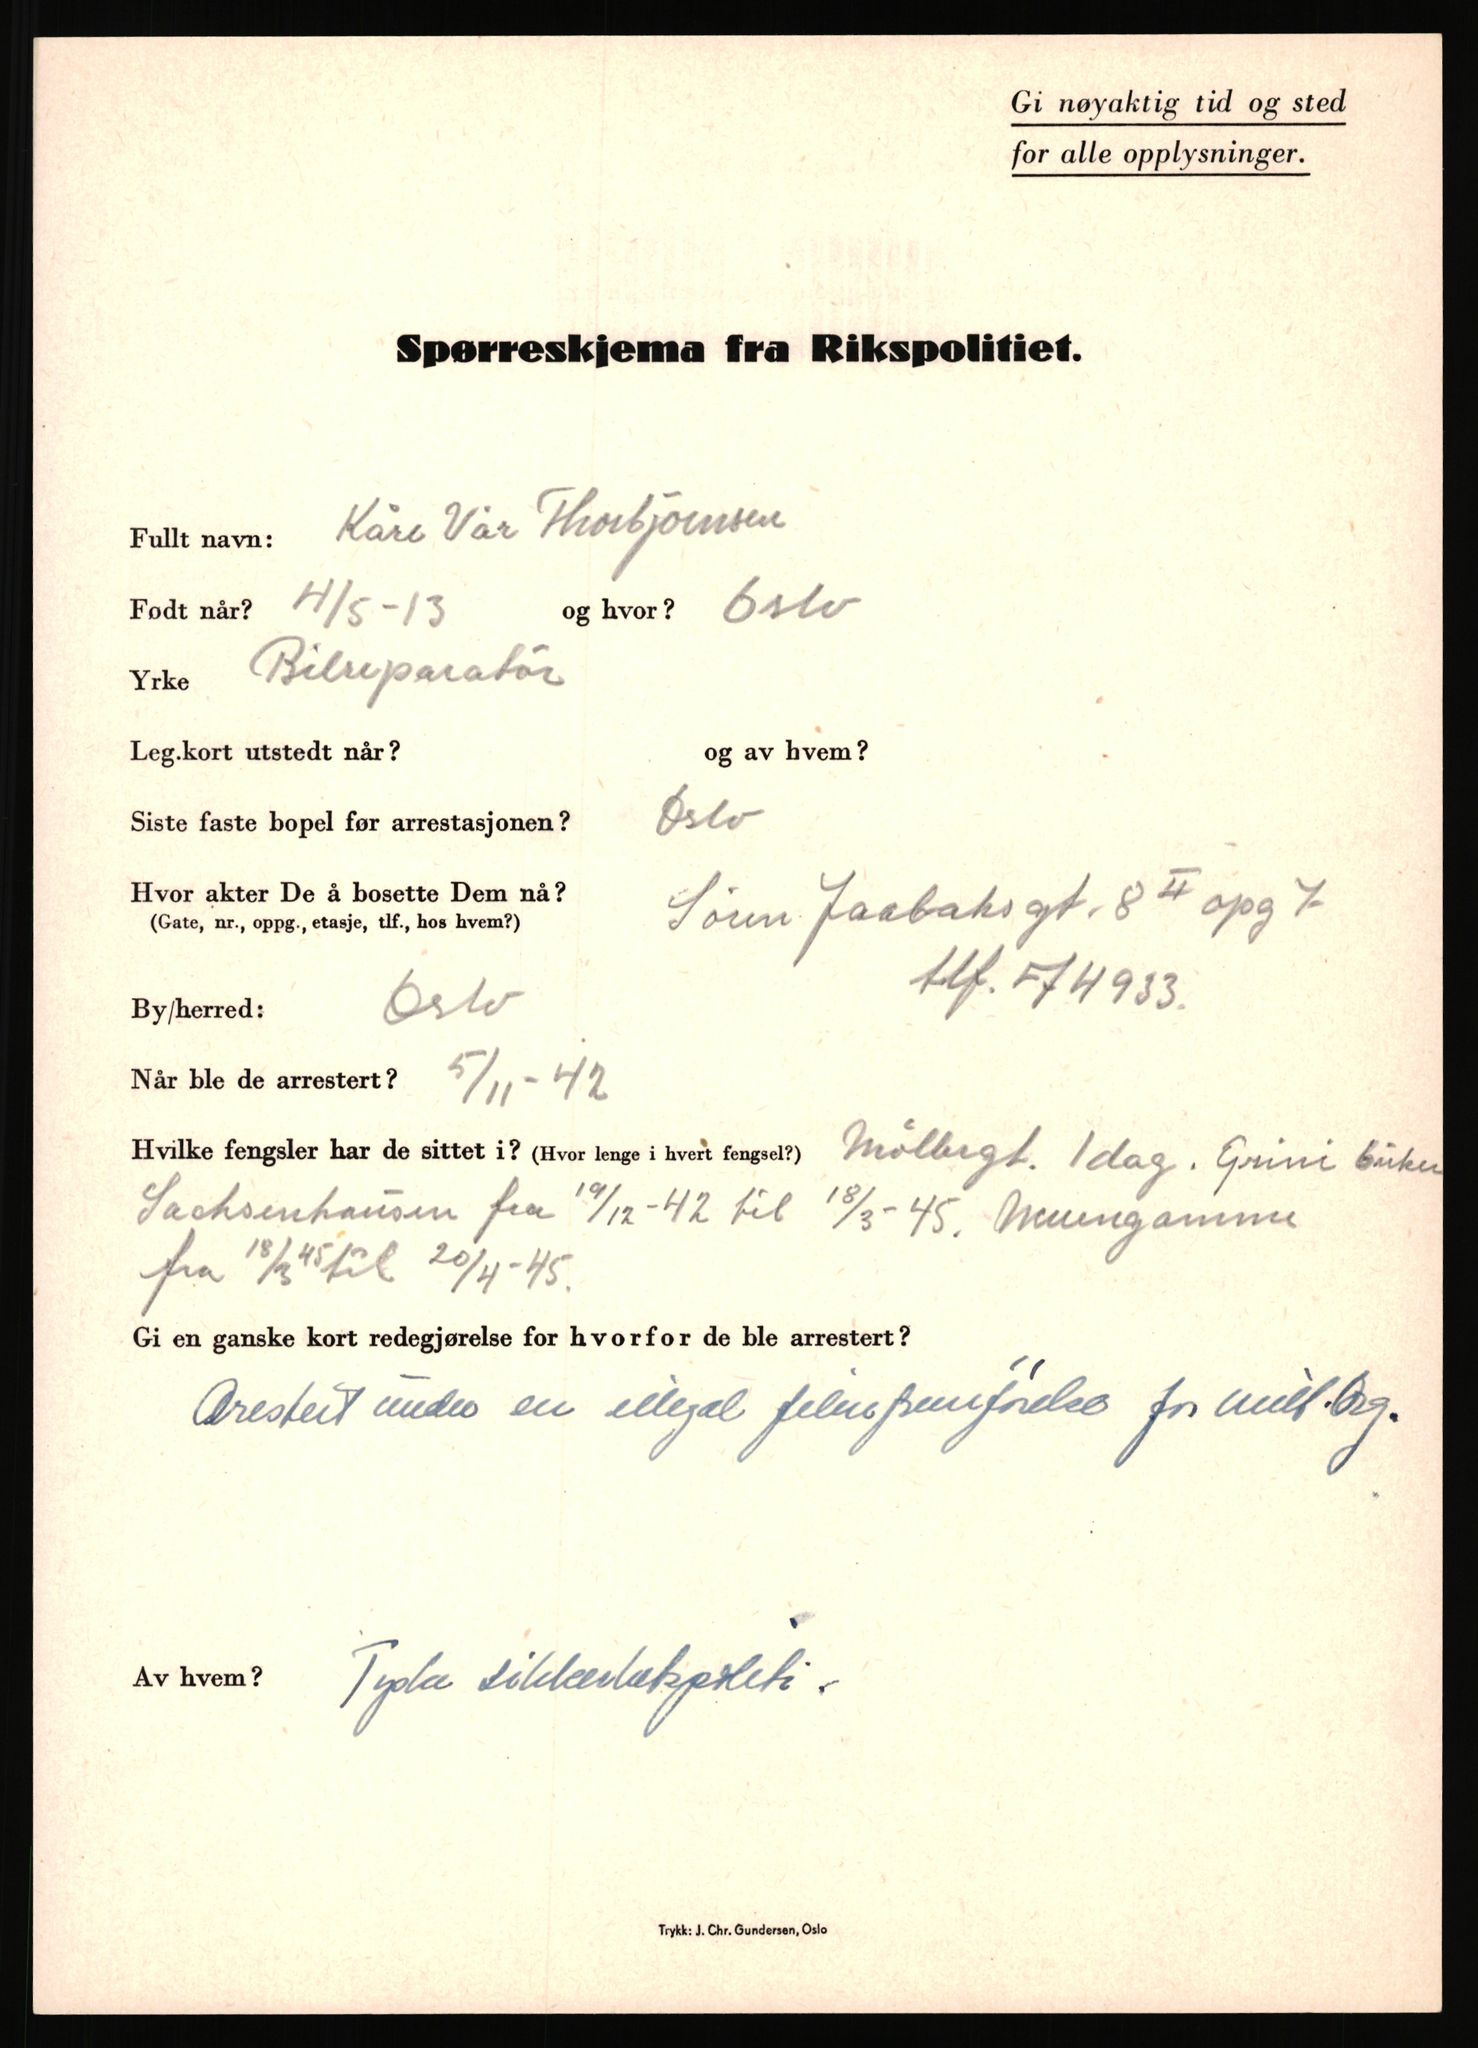 Gi nøyaktig tid og sted
for alle opplysninger.
Spørreskjema fra Rikspolitiet.
Fullt navn: Kåre Vår Thorbjörnsen
Født når? 4/5-13 og hvor? Oslo
Yrke Bilreparatör
Leg.kort utstedt når? og av hvem?
Siste faste bopel før arrestasjonen? Oslo
Hvor akter De å bosette Dem nå? Sören Jaabaksgt. 8 II opg 7
(Gate, nr., oppg., etasje, tlf., hos hvem?)
tlf. 574933.
By/herred: Oslo
Når ble de arrestert? 5/11-42
Hvilke fengsler har de sittet i? (Hvor lenge i hvert fengsel?) Möllergt. 1 dag. Grini 6 uker
Sachsenhausen fra 19/12-42 til 18/3-45. Neuengamme
fra 18/3 45 til 20/4-45.
Gi en ganske kort redegjørelse for hvorfor de ble arrestert?
Arestert under en illegal filmfremförelse for Mil. Org.
Av hvem? Tyske sikkerhetspoliti.
Trykk: J. Chr. Gundersen, Oslo